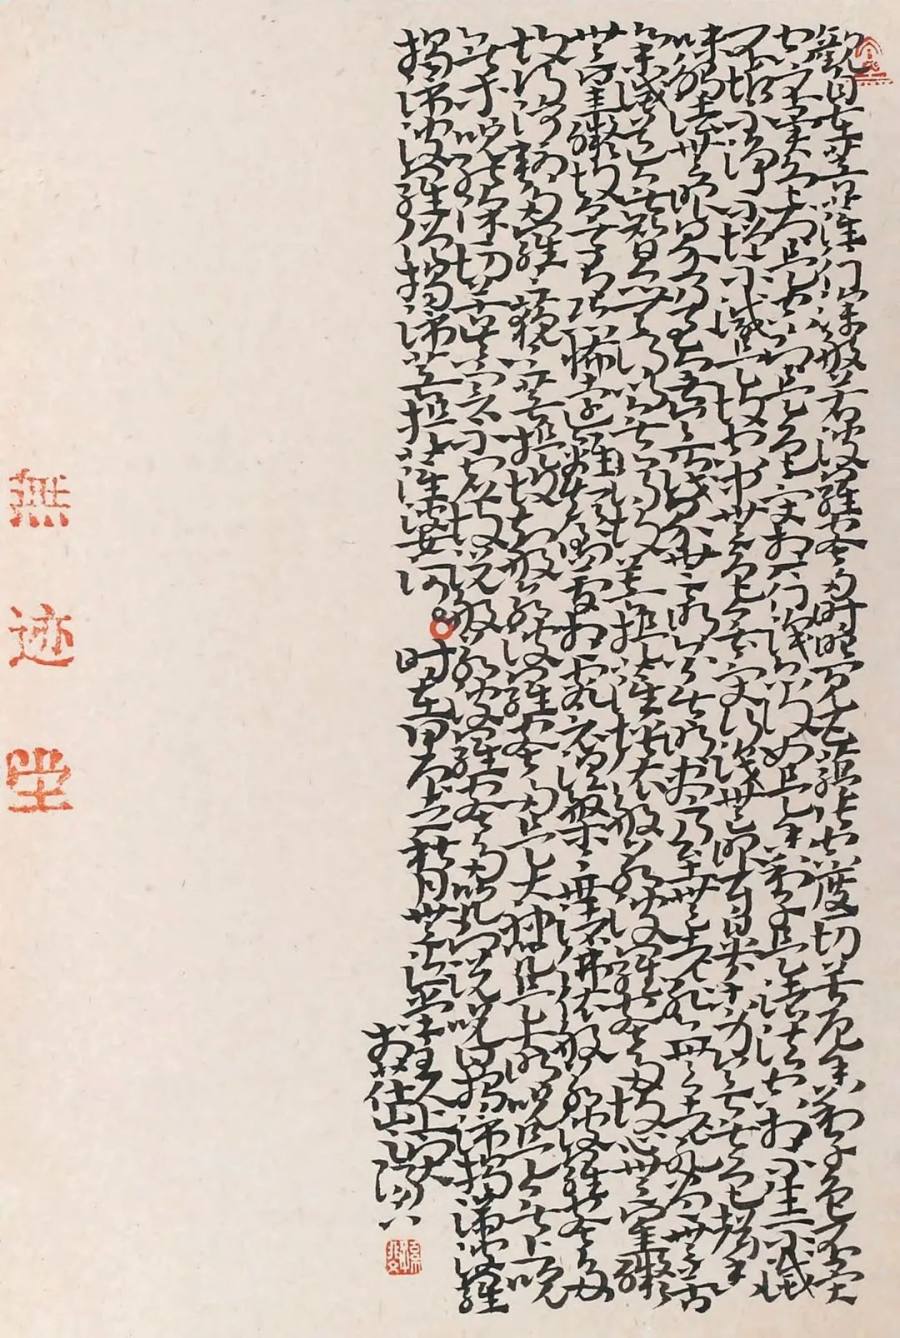 觀自在菩薩行深般若波羅蜜多時照見五蘊皆空度一切苦厄舍利子色不異空
空不異色色即是空空即是色受想行識亦復如是舍利子是諸法空相不生不滅
不垢不淨不增不減是故空中無色無受想行識無眼耳鼻舌身意無色聲香
味觸法無眼界乃至無意識界無無明亦無無明盡乃至無老死亦無老死盡無苦
集滅道無智亦無得以無所得故菩提薩埵依般若波羅蜜多故心無罣礙
無罣礙故無有恐怖遠離顛倒夢想究竟涅槃三世諸佛依般若波羅蜜多
故得阿耨多羅三藐三菩提故知般若波羅蜜多是大神咒是大明咒是無上咒是
無等等咒能除一切苦真實不虛故說般若波羅蜜多咒即說咒曰揭諦揭諦波羅
揭諦波羅僧揭諦菩提薩婆訶 時在甲辰之秋月
無迹坐